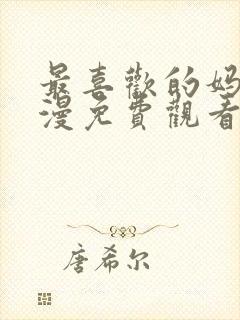 最喜歡的妈
漫免費觀看
唐希尔